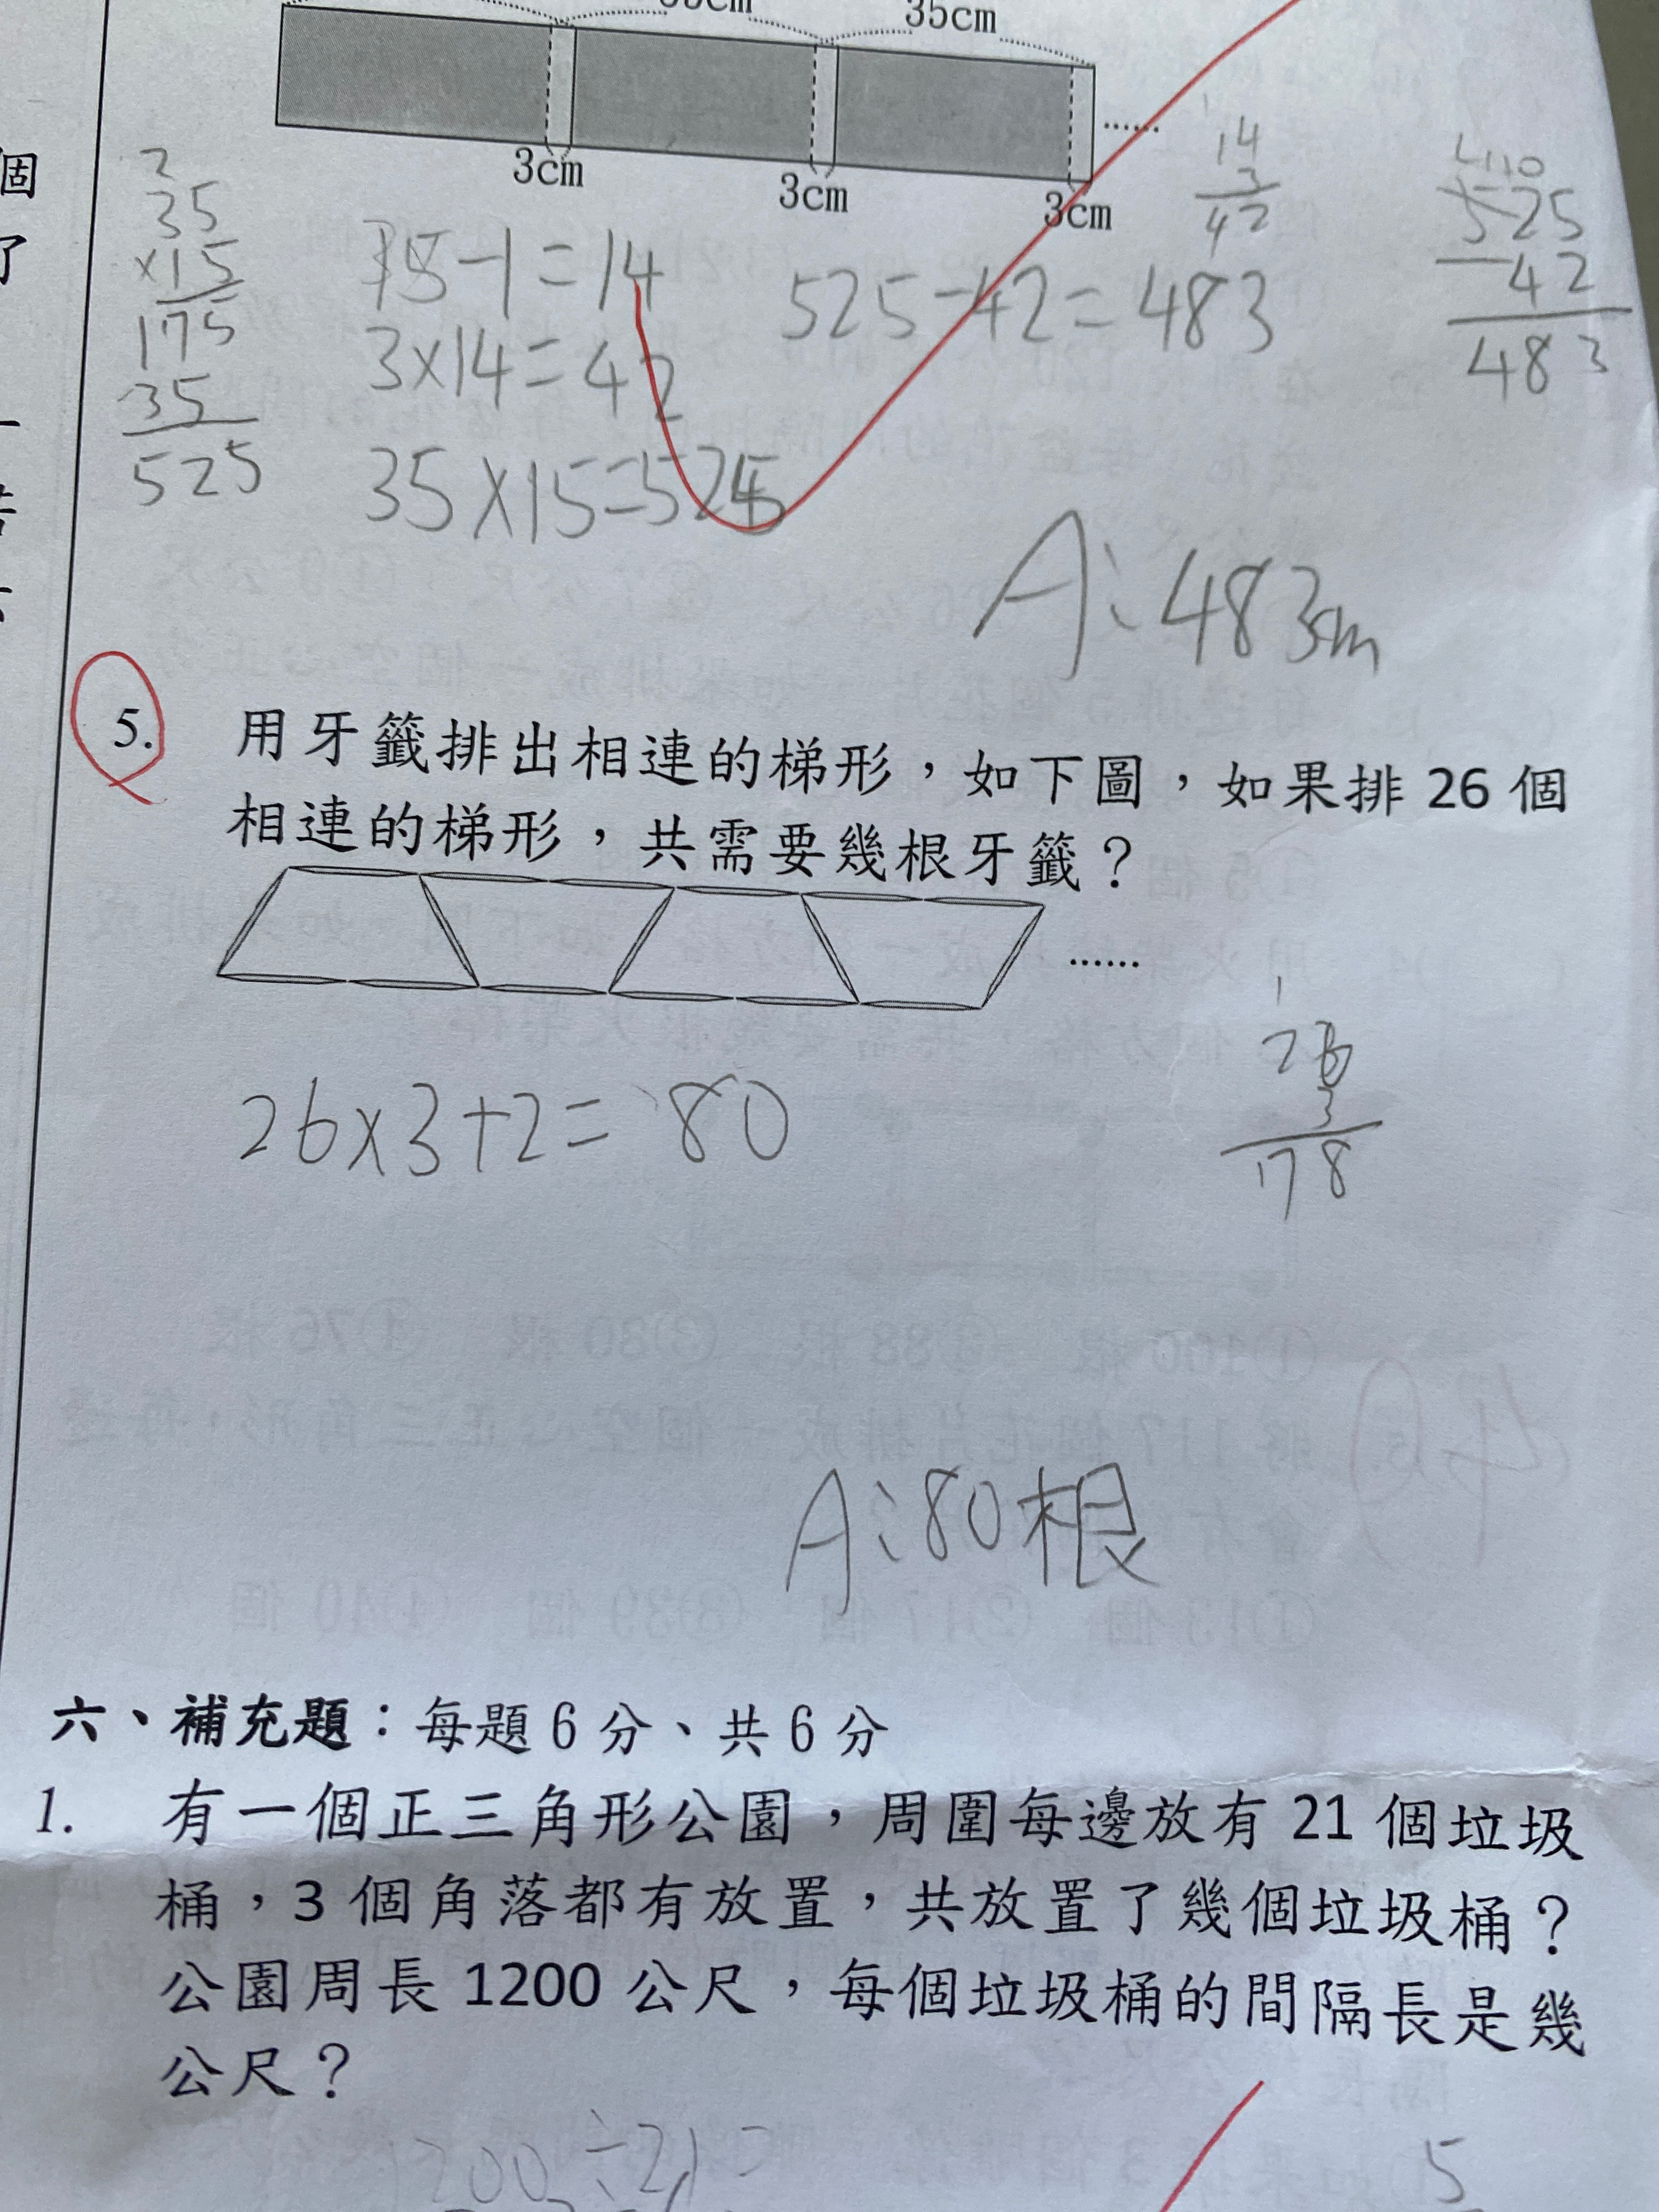 35cm
3cm
3cm
3cm
個
了
2
35
×15
175
35
525
15-1=14
3×14=42
35×15=525
525-42=483
14
3
42
525
42
483
A:483cm
5. 用牙籤排出相連的梯形，如下圖，如果排 26 個
相連的梯形，共需要幾根牙籤？
......
26×3+2=80
1
26
3
178
A:80根
六、補充題：每題 6 分、共 6 分
1. 有一個正三角形公園，周圍每邊放有 21 個垃圾
桶，3 個角落都有放置，共放置了幾個垃圾桶？
公園周長 1200 公尺，每個垃圾桶的間隔長是幾
公尺？
1200÷21=
5